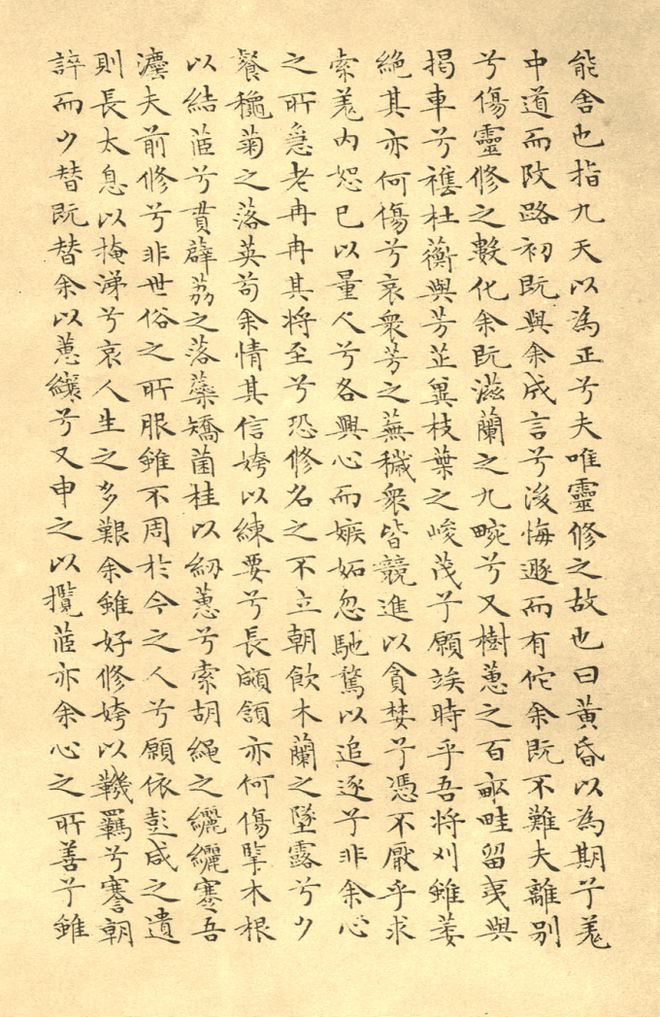 能舎也指九天以為正兮夫唯靈修之故也曰黃昏以為期兮羗
中道而改路初既與余成言兮後悔遯而有佗余既不難夫離別
兮傷靈修之數化余既滋蘭之九畹兮又樹蕙之百畝畦留夷與
揭車兮襍杜蘅與芳芷兾枝葉之峻茂兮願竢時乎吾將刈雖萎
絶其亦何傷兮哀衆芳之蕪穢衆皆競進以貪婪兮憑不厭乎求
索羗内恕己以量人兮各興心而嫉妬忽馳騖以追逐兮非余心
之所急老冉冉其將至兮恐修名之不立朝飲木蘭之墜露兮夕
餐穐菊之落英苟余情其信姱以練要兮長顑頷亦何傷掔木根
以結茝兮貫薜荔之落蘂矯菌桂以紉蕙兮索胡繩之纚纚謇吾
灋夫前修兮非世俗之所服雖不周於今之人兮願依彭咸之遺
則長太息以掩涕兮哀人生之多艱余雖好修姱以鞿羈兮謇朝
誶而夕替既替余以蕙纕兮又申之以攬茝亦余心之所善兮雖